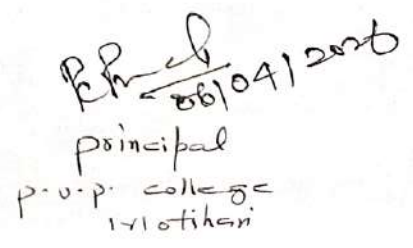 06/04/2026
principal
p.u.p. college
Motihari